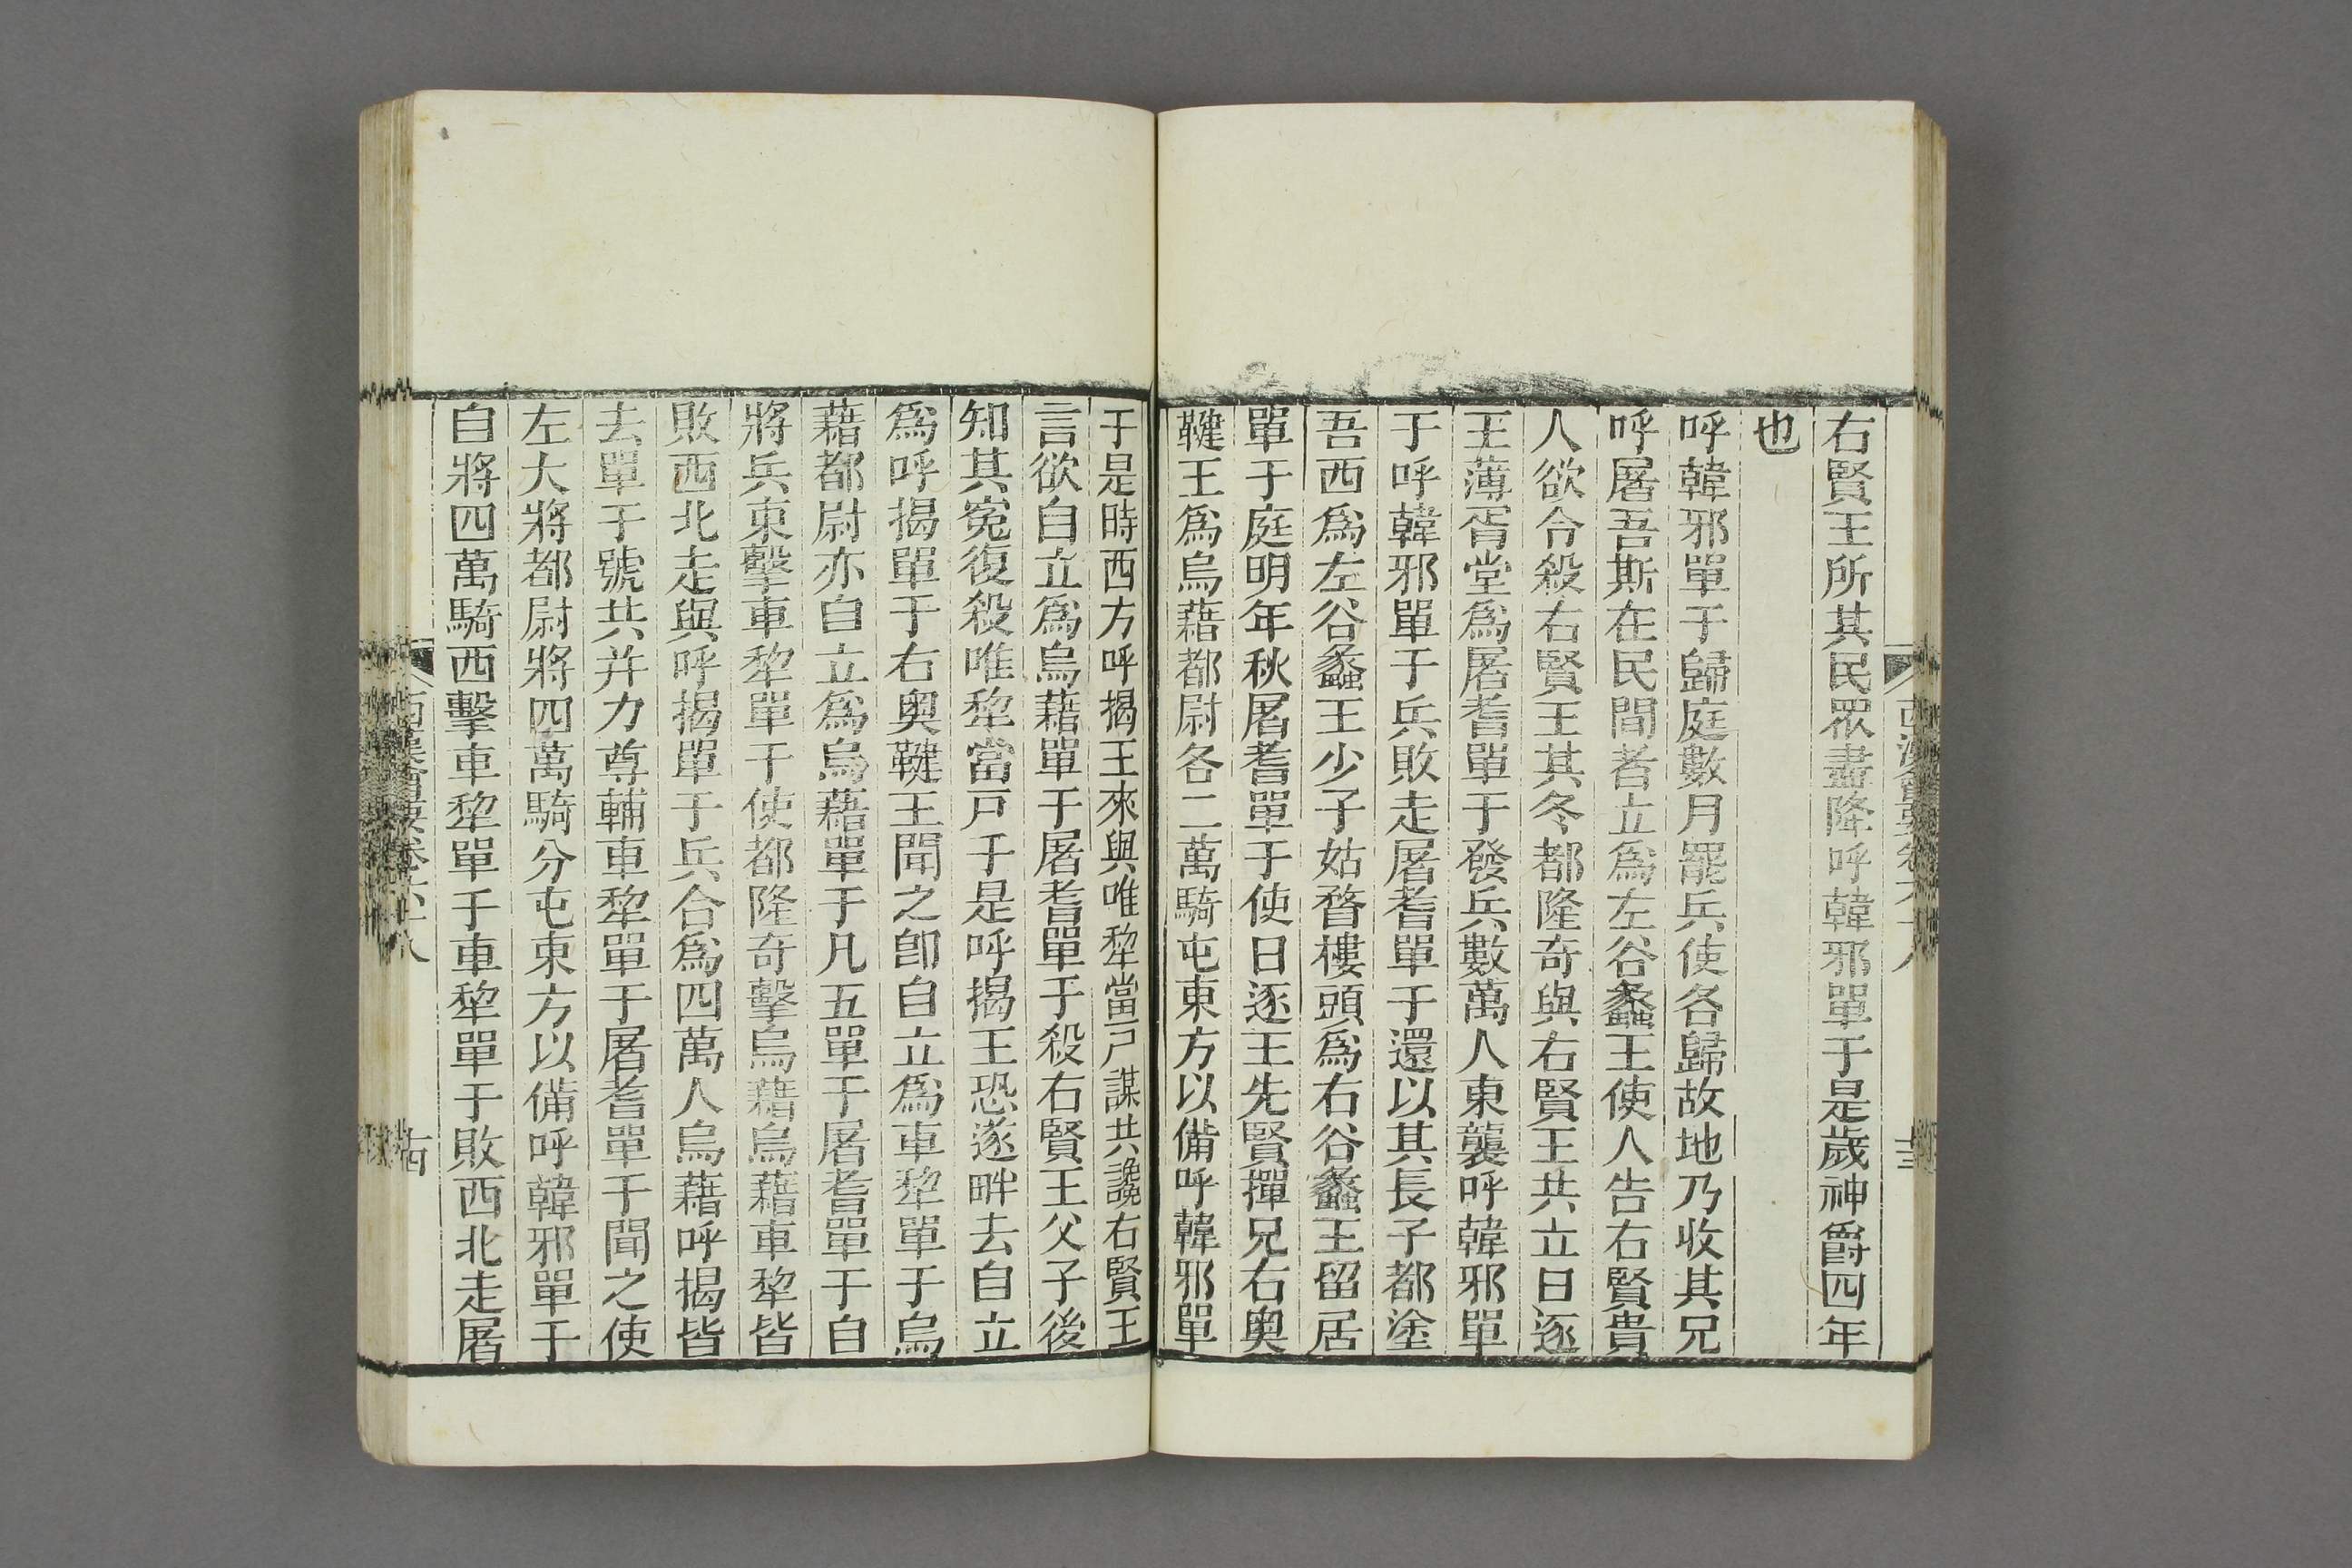 右賢王所其民眾盡降呼韓邪單于是歲神爵四年
也
呼韓邪單于歸庭數月罷兵使各歸故地乃收其兄
呼屠吾斯在民間者立爲左谷蠡王使人告右賢貴
人欲令殺右賢王其冬都隆奇與右賢王共立日逐
王薄胥堂爲屠耆單于發兵數萬人東襲呼韓邪單
于呼韓邪單于兵敗走屠耆單于還以其長子都塗
吾西爲左谷蠡王少子姑瞀樓頭爲右谷蠡王留居
單于庭明年秋屠耆單于使日逐王先賢撣兄右奧
鞬王爲烏藉都尉各二萬騎屯東方以備呼韓邪單
于是時西方呼揭王來與唯犂當戸謀共讒右賢王
言欲自立爲烏藉單于屠耆單于殺右賢王父子後
知其冤復殺唯犂當戸于是呼揭王恐遂畔去自立
爲呼揭單于右奧鞬王聞之卽自立爲車犂單于烏
藉都尉亦自立爲烏藉單于凡五單于屠耆單于自
將兵東擊車犂單于使都隆奇擊烏藉烏藉車犂皆
敗西北走與呼揭單于兵合爲四萬人烏藉呼揭皆
去單于號共并力尊輔車犂單于屠耆單于聞之使
左大將都尉將四萬騎分屯東方以備呼韓邪單于
自將四萬騎西擊車犂單于車犂單于敗西北走屠